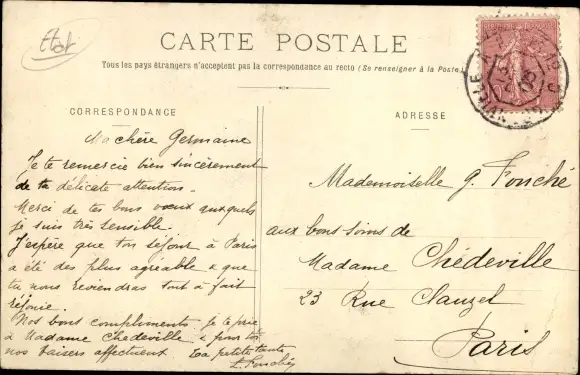 CARTE POSTALE
Tous les pays étrangers n'acceptent pas la correspondance au recto (Se renseigner à la Poste.)
CORRESPONDANCE
Ma chère Germaine
Je te remercie bien sincèrement
de ta délicate attention.
Merci de tes bons vœux auxquels
je suis très sensible.
J'espère que ton séjour à Paris
a été des plus agréable & que
tu nous reviendras tout à fait
réjouie.
Nos bons compliments je te prie
à Madame Chedeville & pour toi
nos baisers affectueux. Ta petite tante
L. Fouché
ADRESSE
Mademoiselle G. Fouché
aux bons soins de
Madame Chédeville
23 Rue Clauzel
Paris